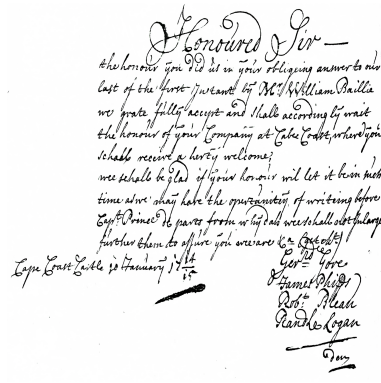 Honoured Sir —
the honour you did us in your obligeing answer to our
last of the first Instant by Mr. William Baillie
we grate fully accept and shall accordingly wait
the honour of your Company at Cabe Coast, where you
schall receive a herty welcome,
wee schall be glad if your honour will let it be in such
time as wee may have the oportunity of writeing before
Capt. Prince de parts from whydah wee shall not inlarge
further then to assure you wee are
Gerrd. Gore
James Phips
Robt. Bleau
Rand Logan
Cape Coast Castle 20 January 17 14/15